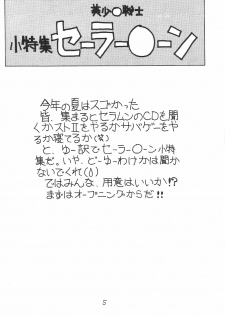 美少〇戦士
小特集 セーラー〇ーン
今年の夏はスゴかった
皆、集まるとセラムンのCDを聞
くかストⅡをやるかサバゲーをや
るか寝てるか(笑)
と、ゆー訳でセーラー〇ーン小特
集だ。いや、どーゆーわけかは聞か
ないでくれ()
ではみんな、用意はいいか!?
まずはオープニングからだ!!
5